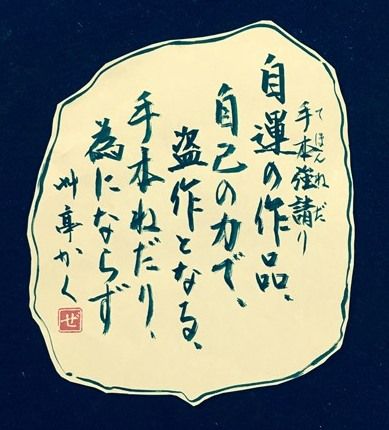 手本強請り
てほんねだ
自運の作品、
自己の力で、
盗作となる、
手本ねだり、
為にならず
艸亭かく
ぜ